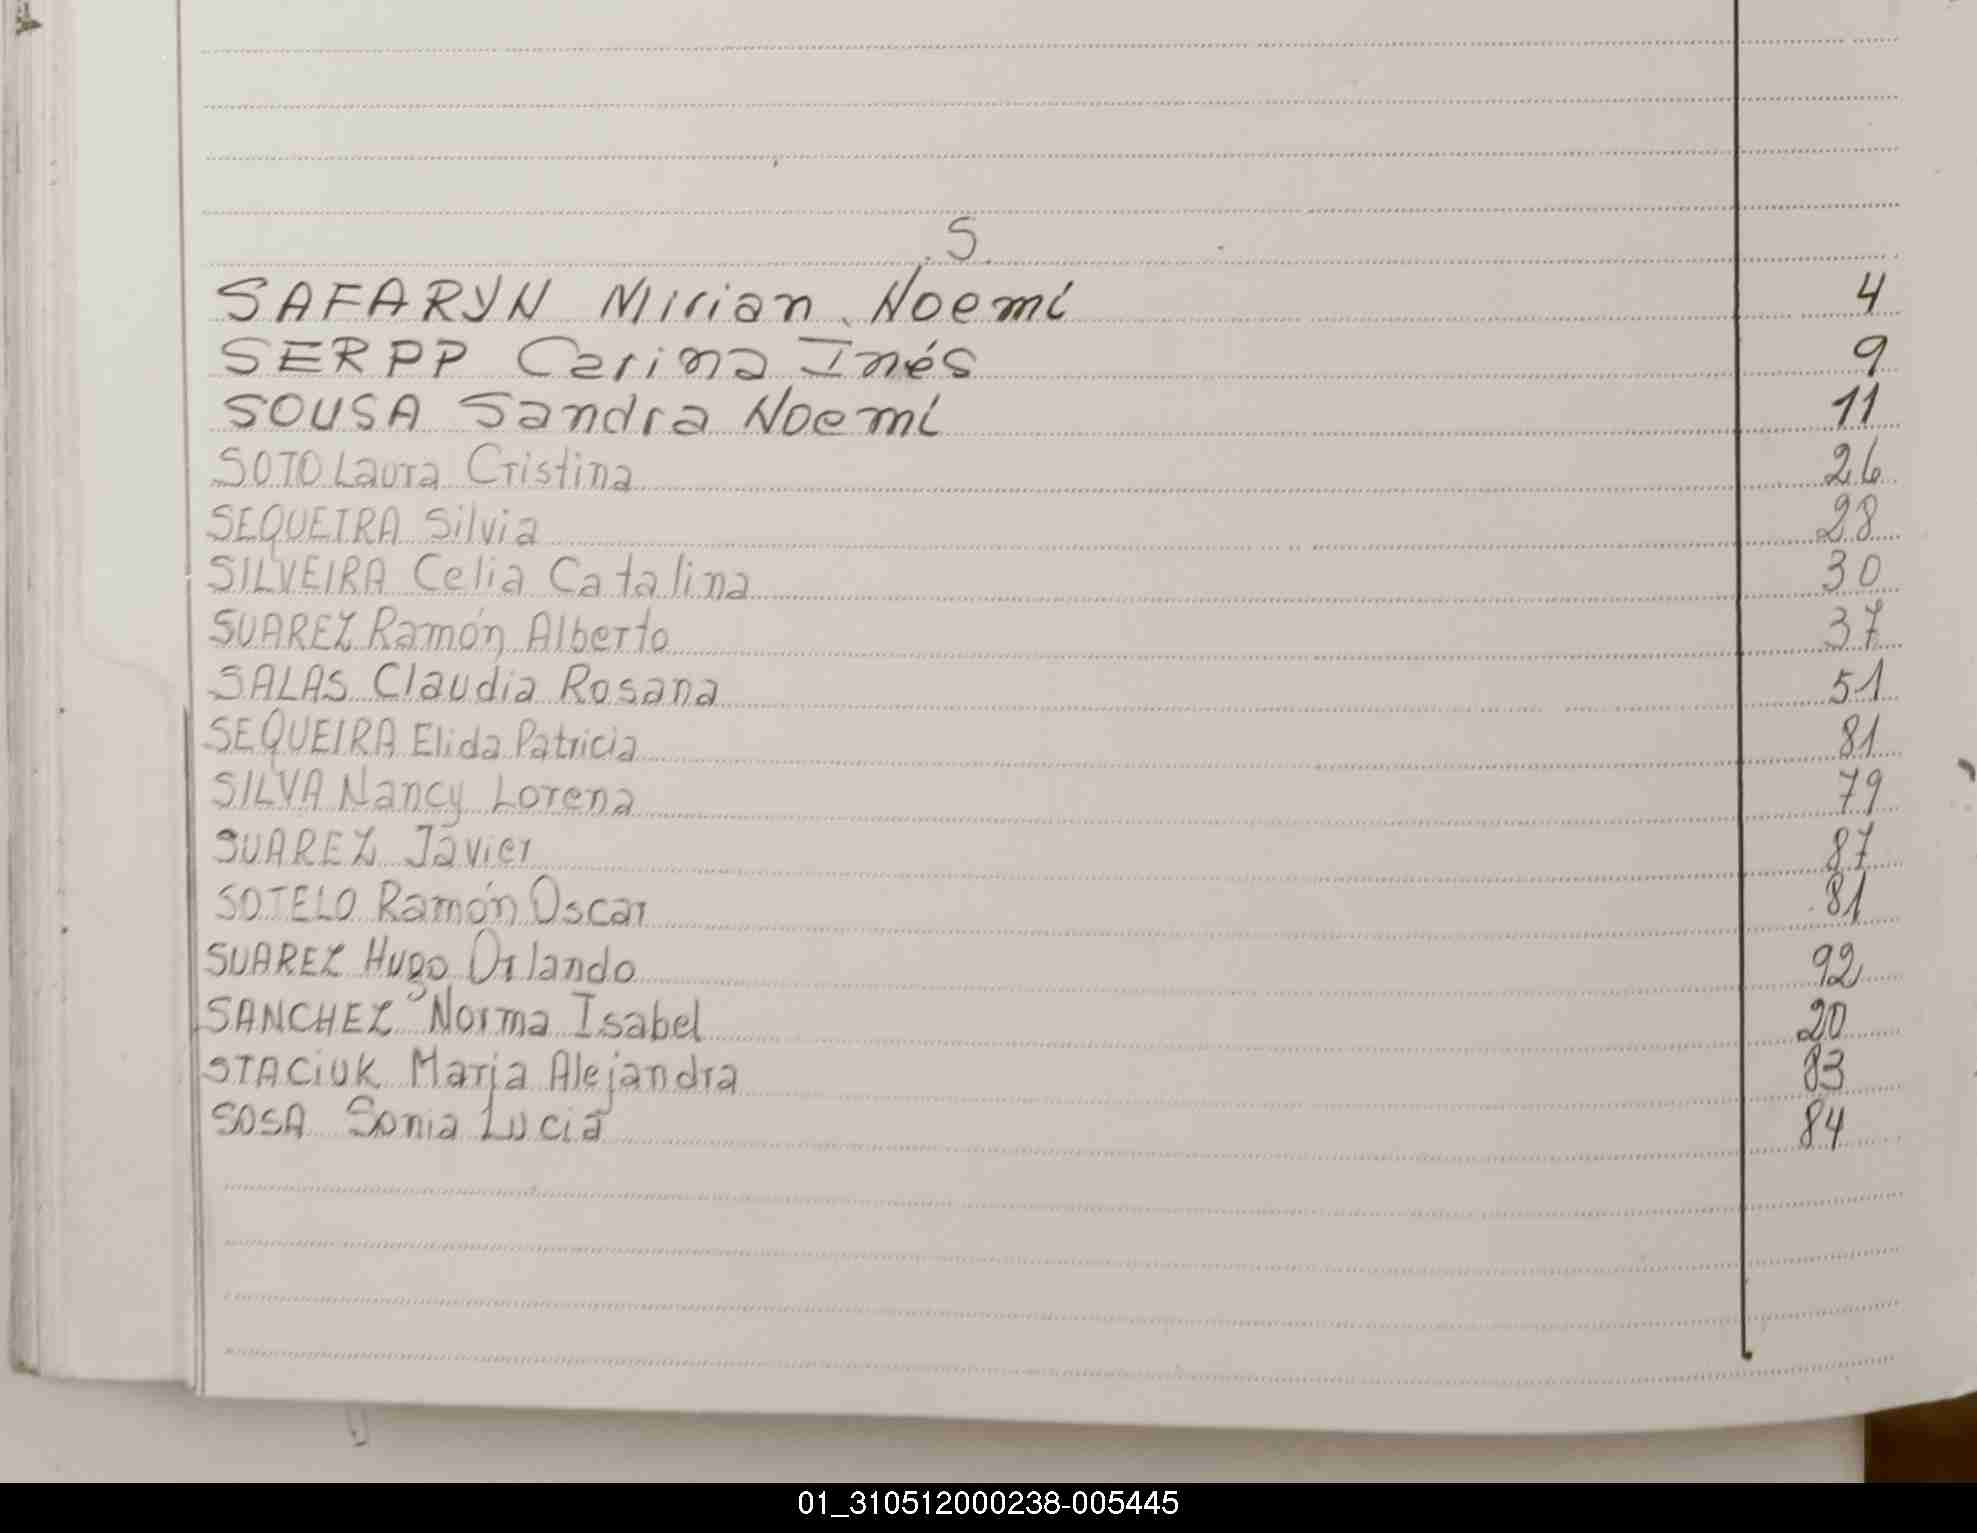 .S.
SAFARYN Mirian Noemí 4
SERPP Carina Inés 9
SOUSA Sandra Noemí 11
SOTO Laura Cristina 26
SEQUEIRA Silvia 28
SILVEIRA Celia Catalina 30
SUAREZ Ramón Alberto 37
SALAS Claudia Rosana 51
SEQUEIRA Elida Patricia 81
SILVA Nancy Lorena 79
SUAREZ Javier 87
SOTELO Ramón Oscar 81
SUAREZ Hugo Orlando 92
SANCHEZ Norma Isabel 20
STACiUK María Alejandra 83
SOSA Sonia Lucia 84
01_310512000238-005445